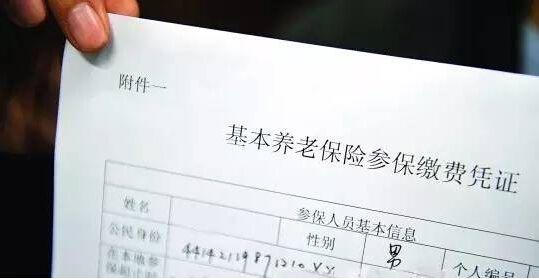 附件一
基本养老保险参保缴费凭证
参保人员基本信息
姓名 性别 男 个人编号
公民身份
在本地参
保起止时